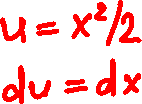 u = x²/2
du = dx